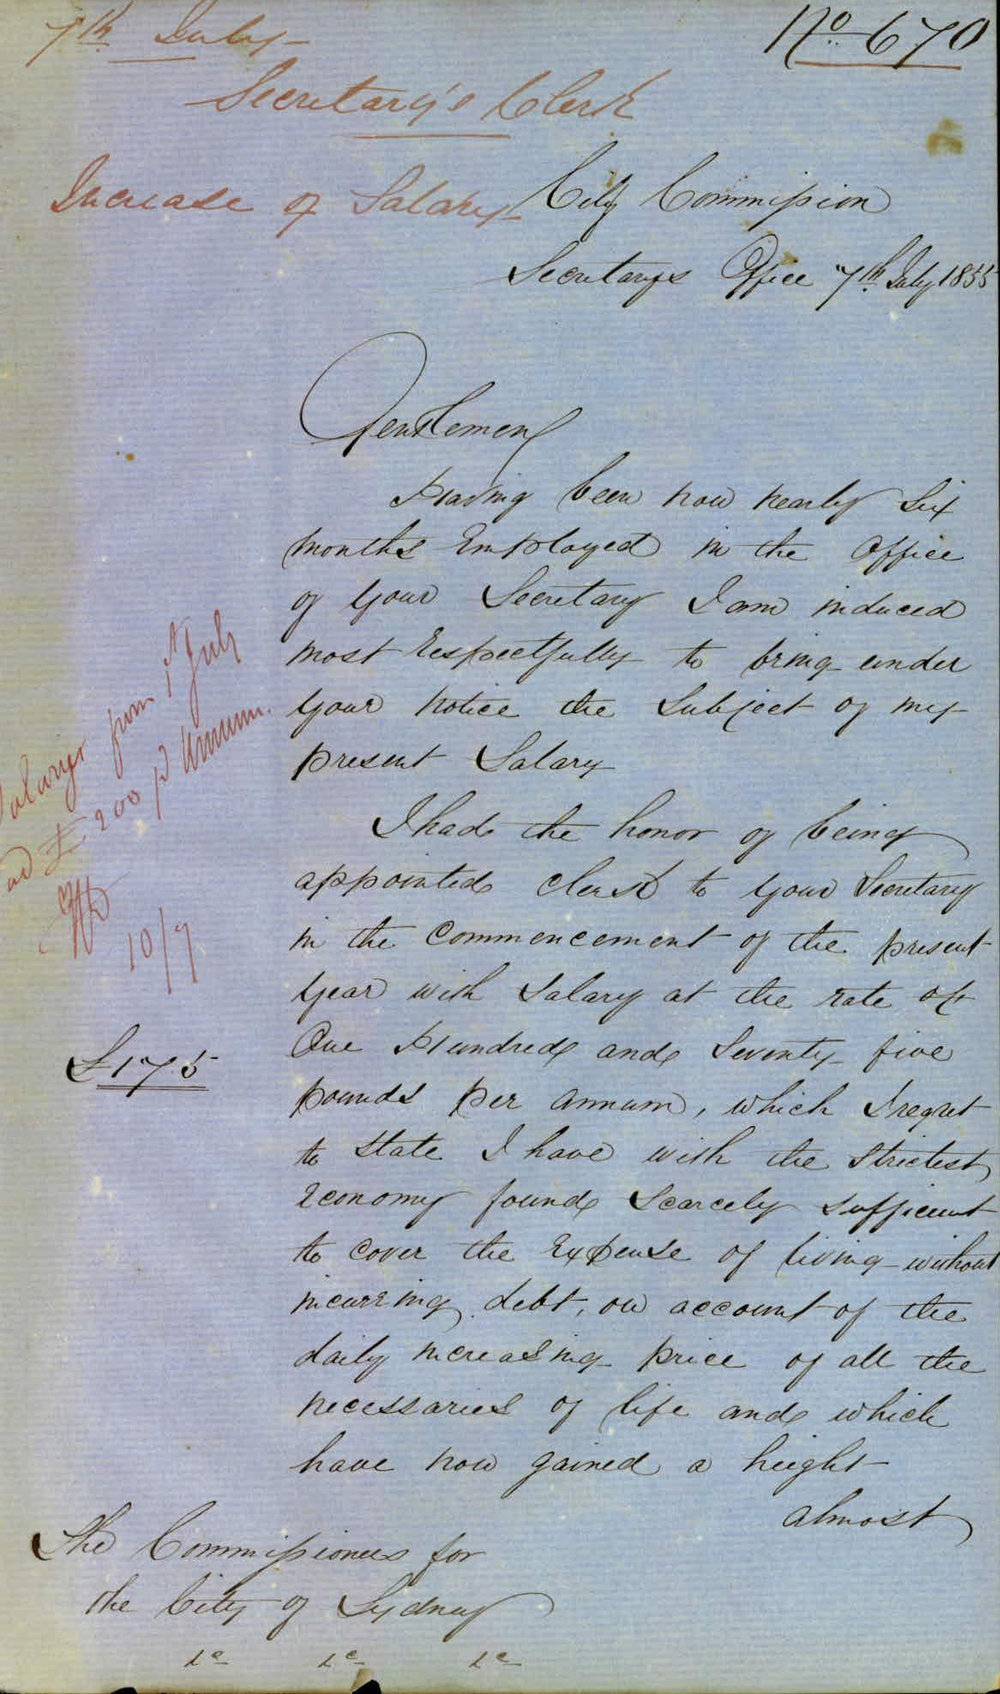 7th July
No 670
Secretary's Clerk
Increase of Salary
City Commission
Secretarys Office 7th July 1855
Gentlemen
Having been now nearly Six
months Employed in the Office
of Your Secretary I am induced
most Respectfully to bring under
Your notice the Subject of my
present Salary
Salary from 1st July
£200 p Annum.
10/7
I had the honor of being
appointed clerk to Your Secretary
in the Commencement of the present
Year with Salary at the rate of
One Hundred and Seventy five
£175
pounds per annum, which I regret
to State I have with the Strictest
Economy found Scarcely Sufficient
to cover the Expense of living without
incurring debt, on account of the
daily increasing price of all the
necessaries of life and which
have now gained a height
almost
The Commissioners for
the City of Sydney